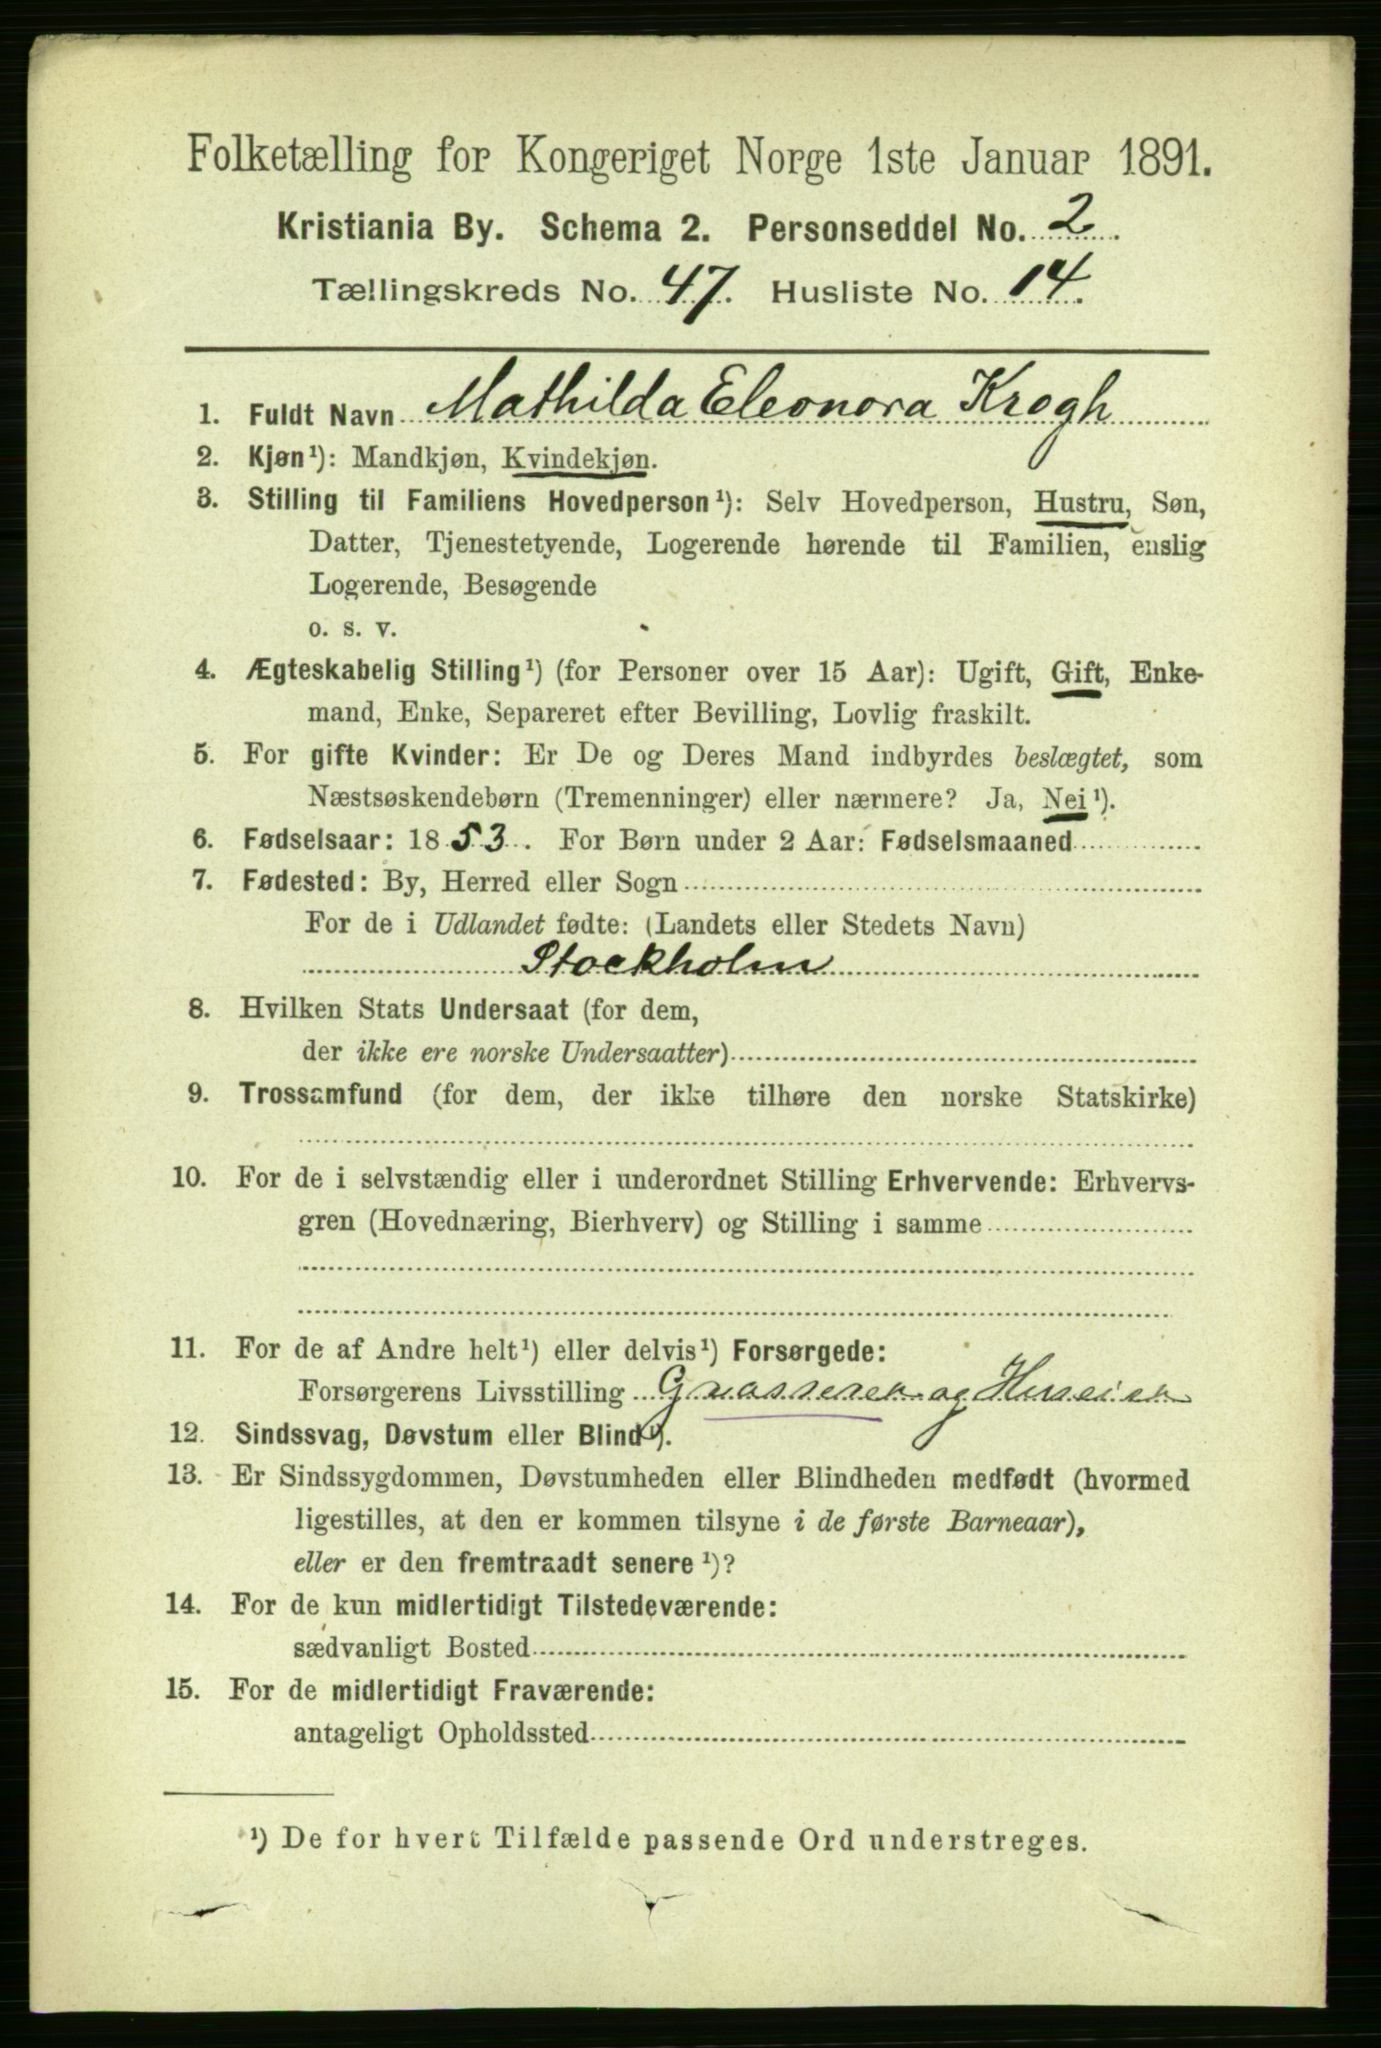 Folketælling for Kongeriget Norge 1ste Januar 1891.
Kristiania By. Schema 2. Personseddel No. 2.
Tællingskreds No. 47. Husliste No. 14.
1. Fuldt Navn Mathilda Eleonora Krogh
2. Kjøn¹): Mandkjøn, Kvindekjøn.
3. Stilling til Familiens Hovedperson¹): Selv Hovedperson, Hustru, Søn,
Datter, Tjenestetyende, Logerende hørende til Familien, enslig
Logerende, Besøgende
o. s. v.
4. Ægteskabelig Stilling¹) (for Personer over 15 Aar): Ugift, Gift, Enke-
mand, Enke, Separeret efter Bevilling, Lovlig fraskilt.
5. For gifte Kvinder: Er De og Deres Mand indbyrdes beslægtet, som
Næstsøskendebørn (Tremenninger) eller nærmere? Ja, Nei¹).
6. Fødselsaar: 1853. For Børn under 2 Aar: Fødselsmaaned
7. Fødested: By, Herred eller Sogn
For de i Udlandet fødte: (Landets eller Stedets Navn)
Stockholm
8. Hvilken Stats Undersaat (for dem,
der ikke ere norske Undersaatter)
9. Trossamfund (for dem, der ikke tilhøre den norske Statskirke)
10. For de i selvstændig eller i underordnet Stilling Erhvervende: Erhvervs-
gren (Hovednæring, Bierhverv) og Stilling i samme
11. For de af Andre helt¹) eller delvis¹) Forsørgede:
Forsørgerens Livsstilling Grosserer og Huseier
12. Sindssvag, Døvstum eller Blind¹).
13. Er Sindssygdommen, Døvstumheden eller Blindheden medfødt (hvormed
ligestilles, at den er kommen tilsyne i de første Barneaar),
eller er den fremtraadt senere¹)?
14. For de kun midlertidigt Tilstedeværende:
sædvanligt Bosted
15. For de midlertidigt Fraværende:
antageligt Opholdssted
¹) De for hvert Tilfælde passende Ord understreges.